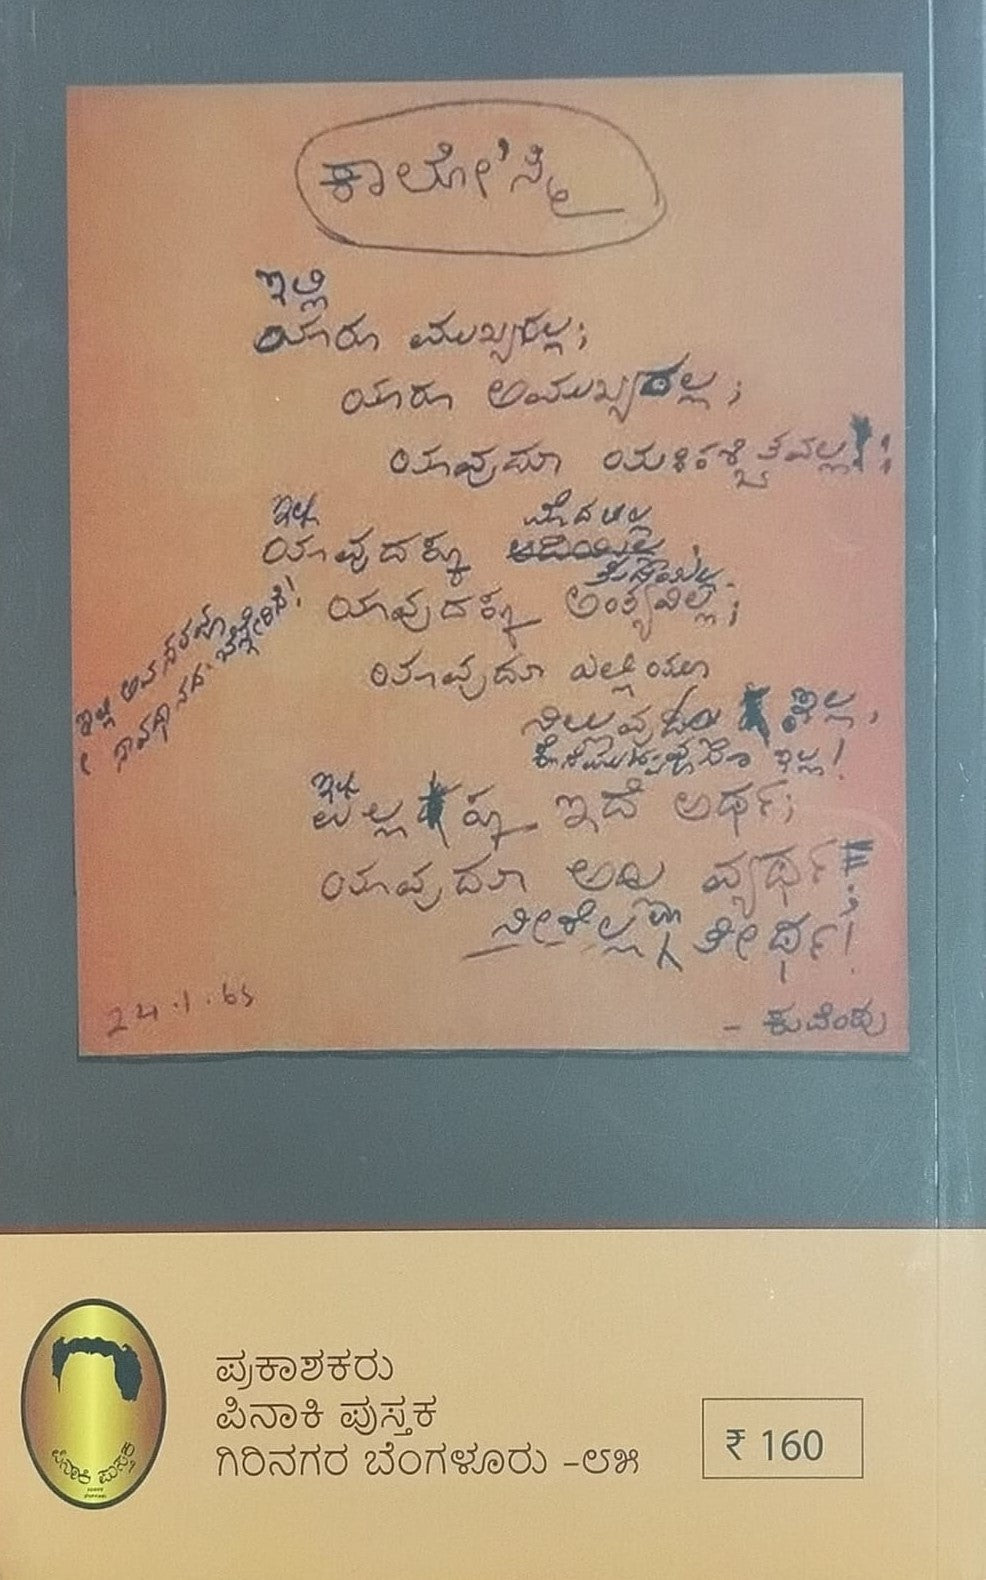 ಕಾಲೋ'ಸ್ಮಿ
ಇಲ್ಲಿ
ಯಾರೂ ಮುಖ್ಯರಲ್ಲ;
ಯಾರೂ ಅಮುಖ್ಯರಲ್ಲ;
ಯಾವುದೂ ಯಃಕಶ್ಚಿತವಲ್ಲ!
ಇಲ್ಲಿ
ಮೊದಲಿಲ್ಲ
ಯಾವುದಕ್ಕೂ ಆದಿಯಿಲ್ಲ;
ತುದಿಯಿಲ್ಲ
ಯಾವುದಕ್ಕೂ ಅಂತ್ಯವಿಲ್ಲ;
ಇಲ್ಲಿ ಅವಸರವೂ
ಸಾವಧಾನದ ಬೆನ್ನೇರಿದೆ!
ಯಾವುದೂ ಎಲ್ಲಿಯೂ
ನಿಲ್ಲುವುದೂ ಇಲ್ಲ,
ಕೊನೆಮುಟ್ಟುವುದೂ ಇಲ್ಲ!
ಇಲ್ಲಿ
ಎಲ್ಲಕ್ಕೂ ಇದೆ ಅರ್ಥ;
ಯಾವುದೂ ಅಲ್ಲ ವ್ಯರ್ಥ;
ನೀರೆಲ್ಲ ತೀರ್ಥ!
24.1.65
- ಕುವೆಂಪು
ಪಿನಾಕಿ ಪುಸ್ತಕ
ಪ್ರಕಾಶಕರು
ಪಿನಾಕಿ ಪುಸ್ತಕ
ಗಿರಿನಗರ ಬೆಂಗಳೂರು -೮೫
₹ 160